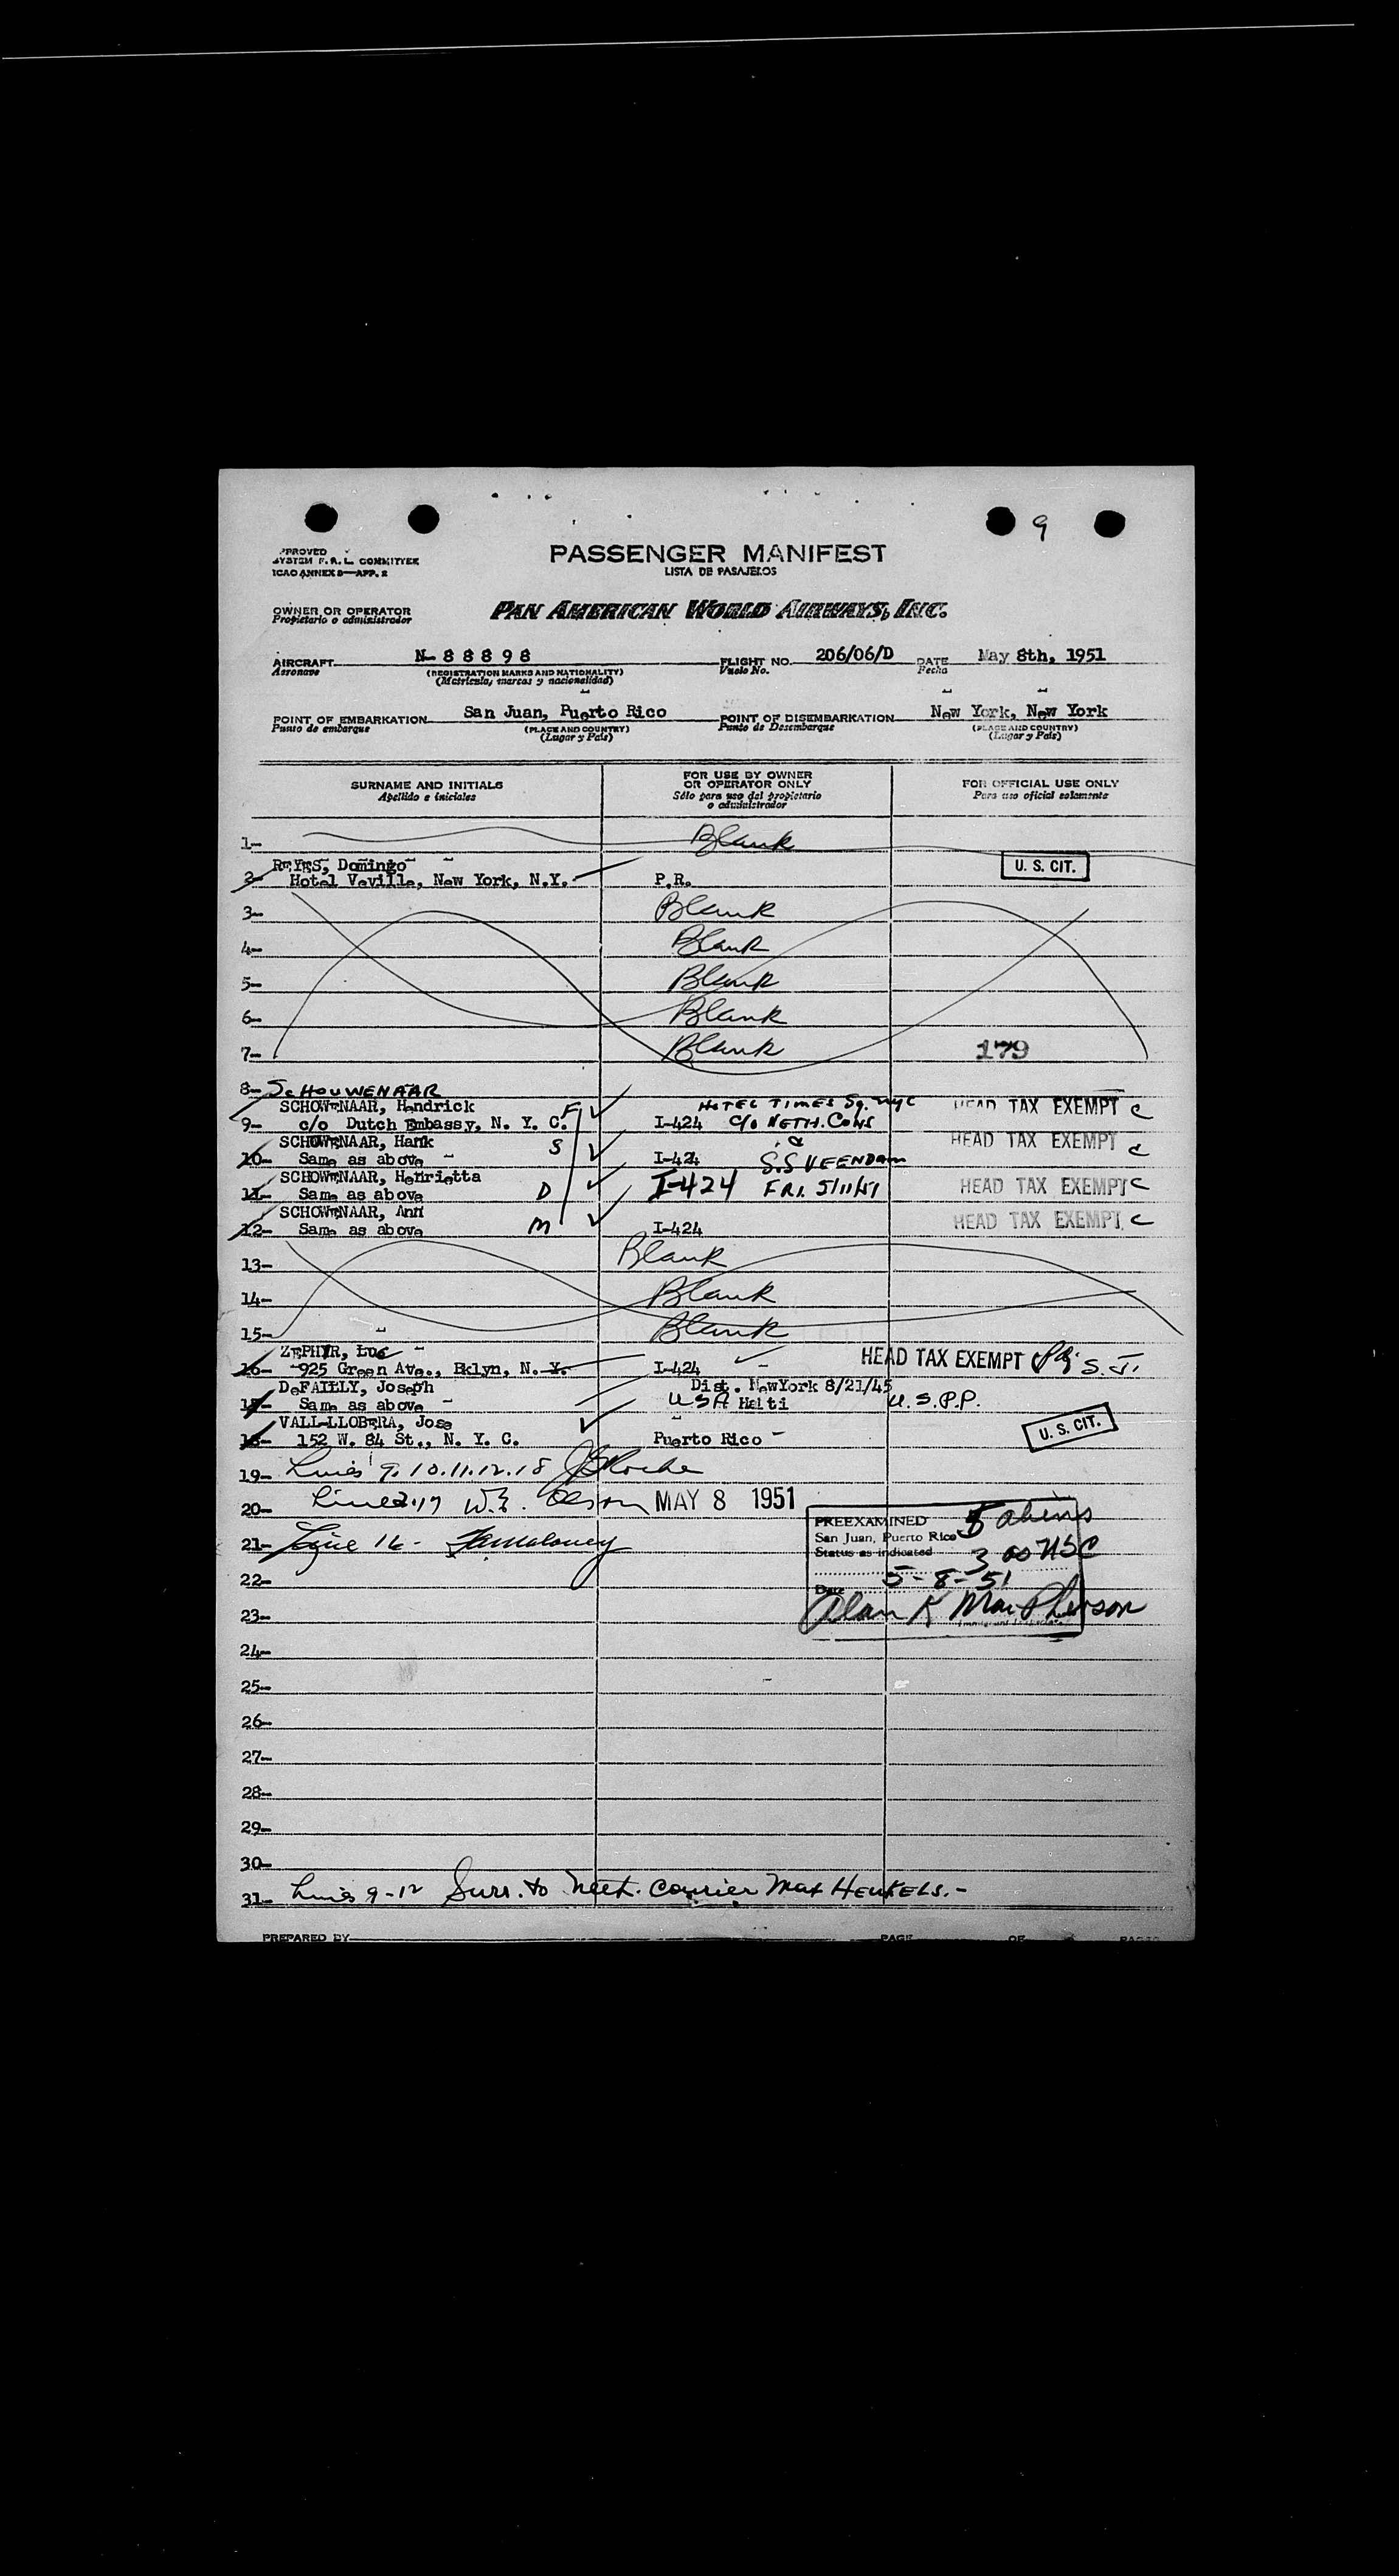 9
APPROVED
SYSTEM F.A.L. COMMITTEE
ICAO ANNEX 9—APP. 2
PASSENGER MANIFEST
LISTA DE PASAJEROS
OWNER OR OPERATOR
Propietario o administrador
PAN AMERICAN WORLD AIRWAYS, INC.
AIRCRAFT N-88898 FLIGHT NO. 206/06/D DATE May 8th, 1951
Aeronave (REGISTRATION MARKS AND NATIONALITY) Vuelo No. Fecha
(Matricula, marcas y nacionalidad)
POINT OF EMBARKATION San Juan, Puerto Rico POINT OF DISEMBARKATION New York, New York
Punto de embarque (PLACE AND COUNTRY) Punto de Desembarque (PLACE AND COUNTRY)
(Lugar y País) (Lugar y País)
SURNAME AND INITIALS FOR USE BY OWNER OR OPERATOR ONLY FOR OFFICIAL USE ONLY
Apellido e iniciales Sólo para uso del propietario o administrador Para uso oficial solamente
1- Blank
REYES, Domingo U. S. CIT.
2- Hotel Veville, New York, N.Y. P.R.
3- Blank
4- Blank
5- Blank
6- Blank
7- Blank 179
8- SCHOUWENAAR
SCHOWENAAR, Hendrick F HOTEL TIMES Sq. NYC HEAD TAX EXEMPT C
9- c/o Dutch Embassy, N. Y. C. I-424 C/O NETH. CONS
SCHOWENAAR, Hank S HEAD TAX EXEMPT C
10- Same as above I-424 S.S VEENDAM
SCHOWENAAR, Henrietta D HEAD TAX EXEMPT C
11- Same as above I-424 FRI. 5/11/51
SCHOWENAAR, Ann M HEAD TAX EXEMPT C
12- Same as above I-424
13- Blank
14- Blank
15- Blank
ZEPHYR, Luc HEAD TAX EXEMPT S.J.
16- 925 Green Ave., Bklyn, N. Y. I-424
DeFAILLY, Joseph Dist. NewYork 8/21/45
17- Same as above USA Haiti U.S.P.P.
VALL-LLOBERA, Jose U. S. CIT.
18- 152 W. 84 St., N. Y. C. Puerto Rico
19- Lines 9.10.11.12.18
20- Line 2.17 W. Olson MAY 8 1951
PREEXAMINED 5 aliens
San Juan, Puerto Rico
Status as indicated 3 as USC
Date 5-8-51
Alan K MacPherson
Immigrant Inspector
21- Line 16-
22-
23-
24-
25-
26-
27-
28-
29-
30-
31- Lines 9-12 Surr. to Neth. Courier Max HENKELS.-
PREPARED BY PAGE OF PAGES